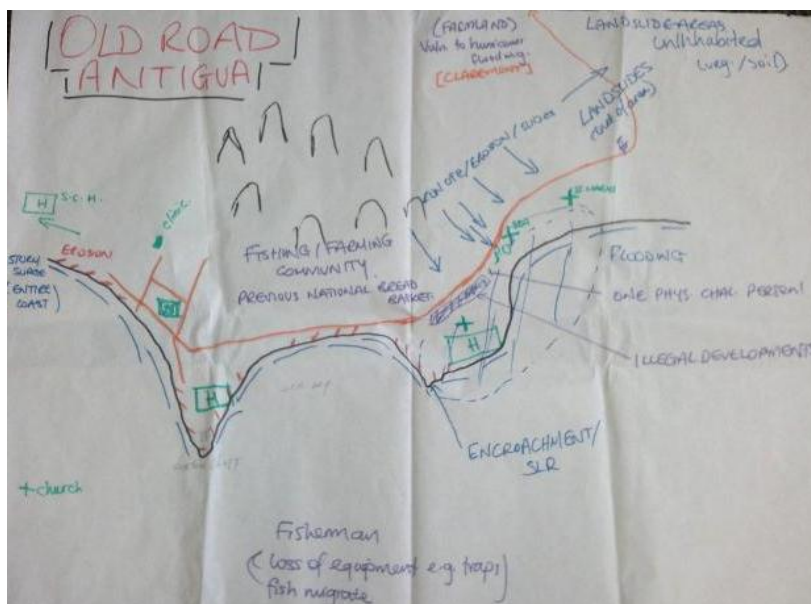 OLD ROAD
ANTIGUA
(FARMLAND)
Vuln to hurricane
flooding.
[CLAREMONT]
LANDSLIDE AREAS
Uninhabited
(veg./soil)
LANDSLIDES
RUN OFF/EROSION/SLIDES
H
S.C.H.
clinic
EROSION
STORM
SURGE
(ENTIRE
COAST)
FISHING/FARMING
COMMUNITY
PREVIOUS NATIONAL BREAD
BASKET
WETLAND
FLOODING
ONE PHYS. CHAL. PERSON!
ILLEGAL DEVELOPMENT
H
H
ENCROACHMENT/
SLR
+church
Fisherman
(loss of equipment e.g traps)
fish migrate